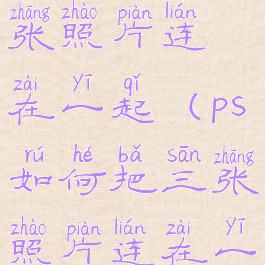 zhāng zhào piàn lián
张照片连
zài yī qǐ
在一起（ps
rú hé bǎ sān zhāng
如何把三张
zhào piàn lián zài yī
照片连在一